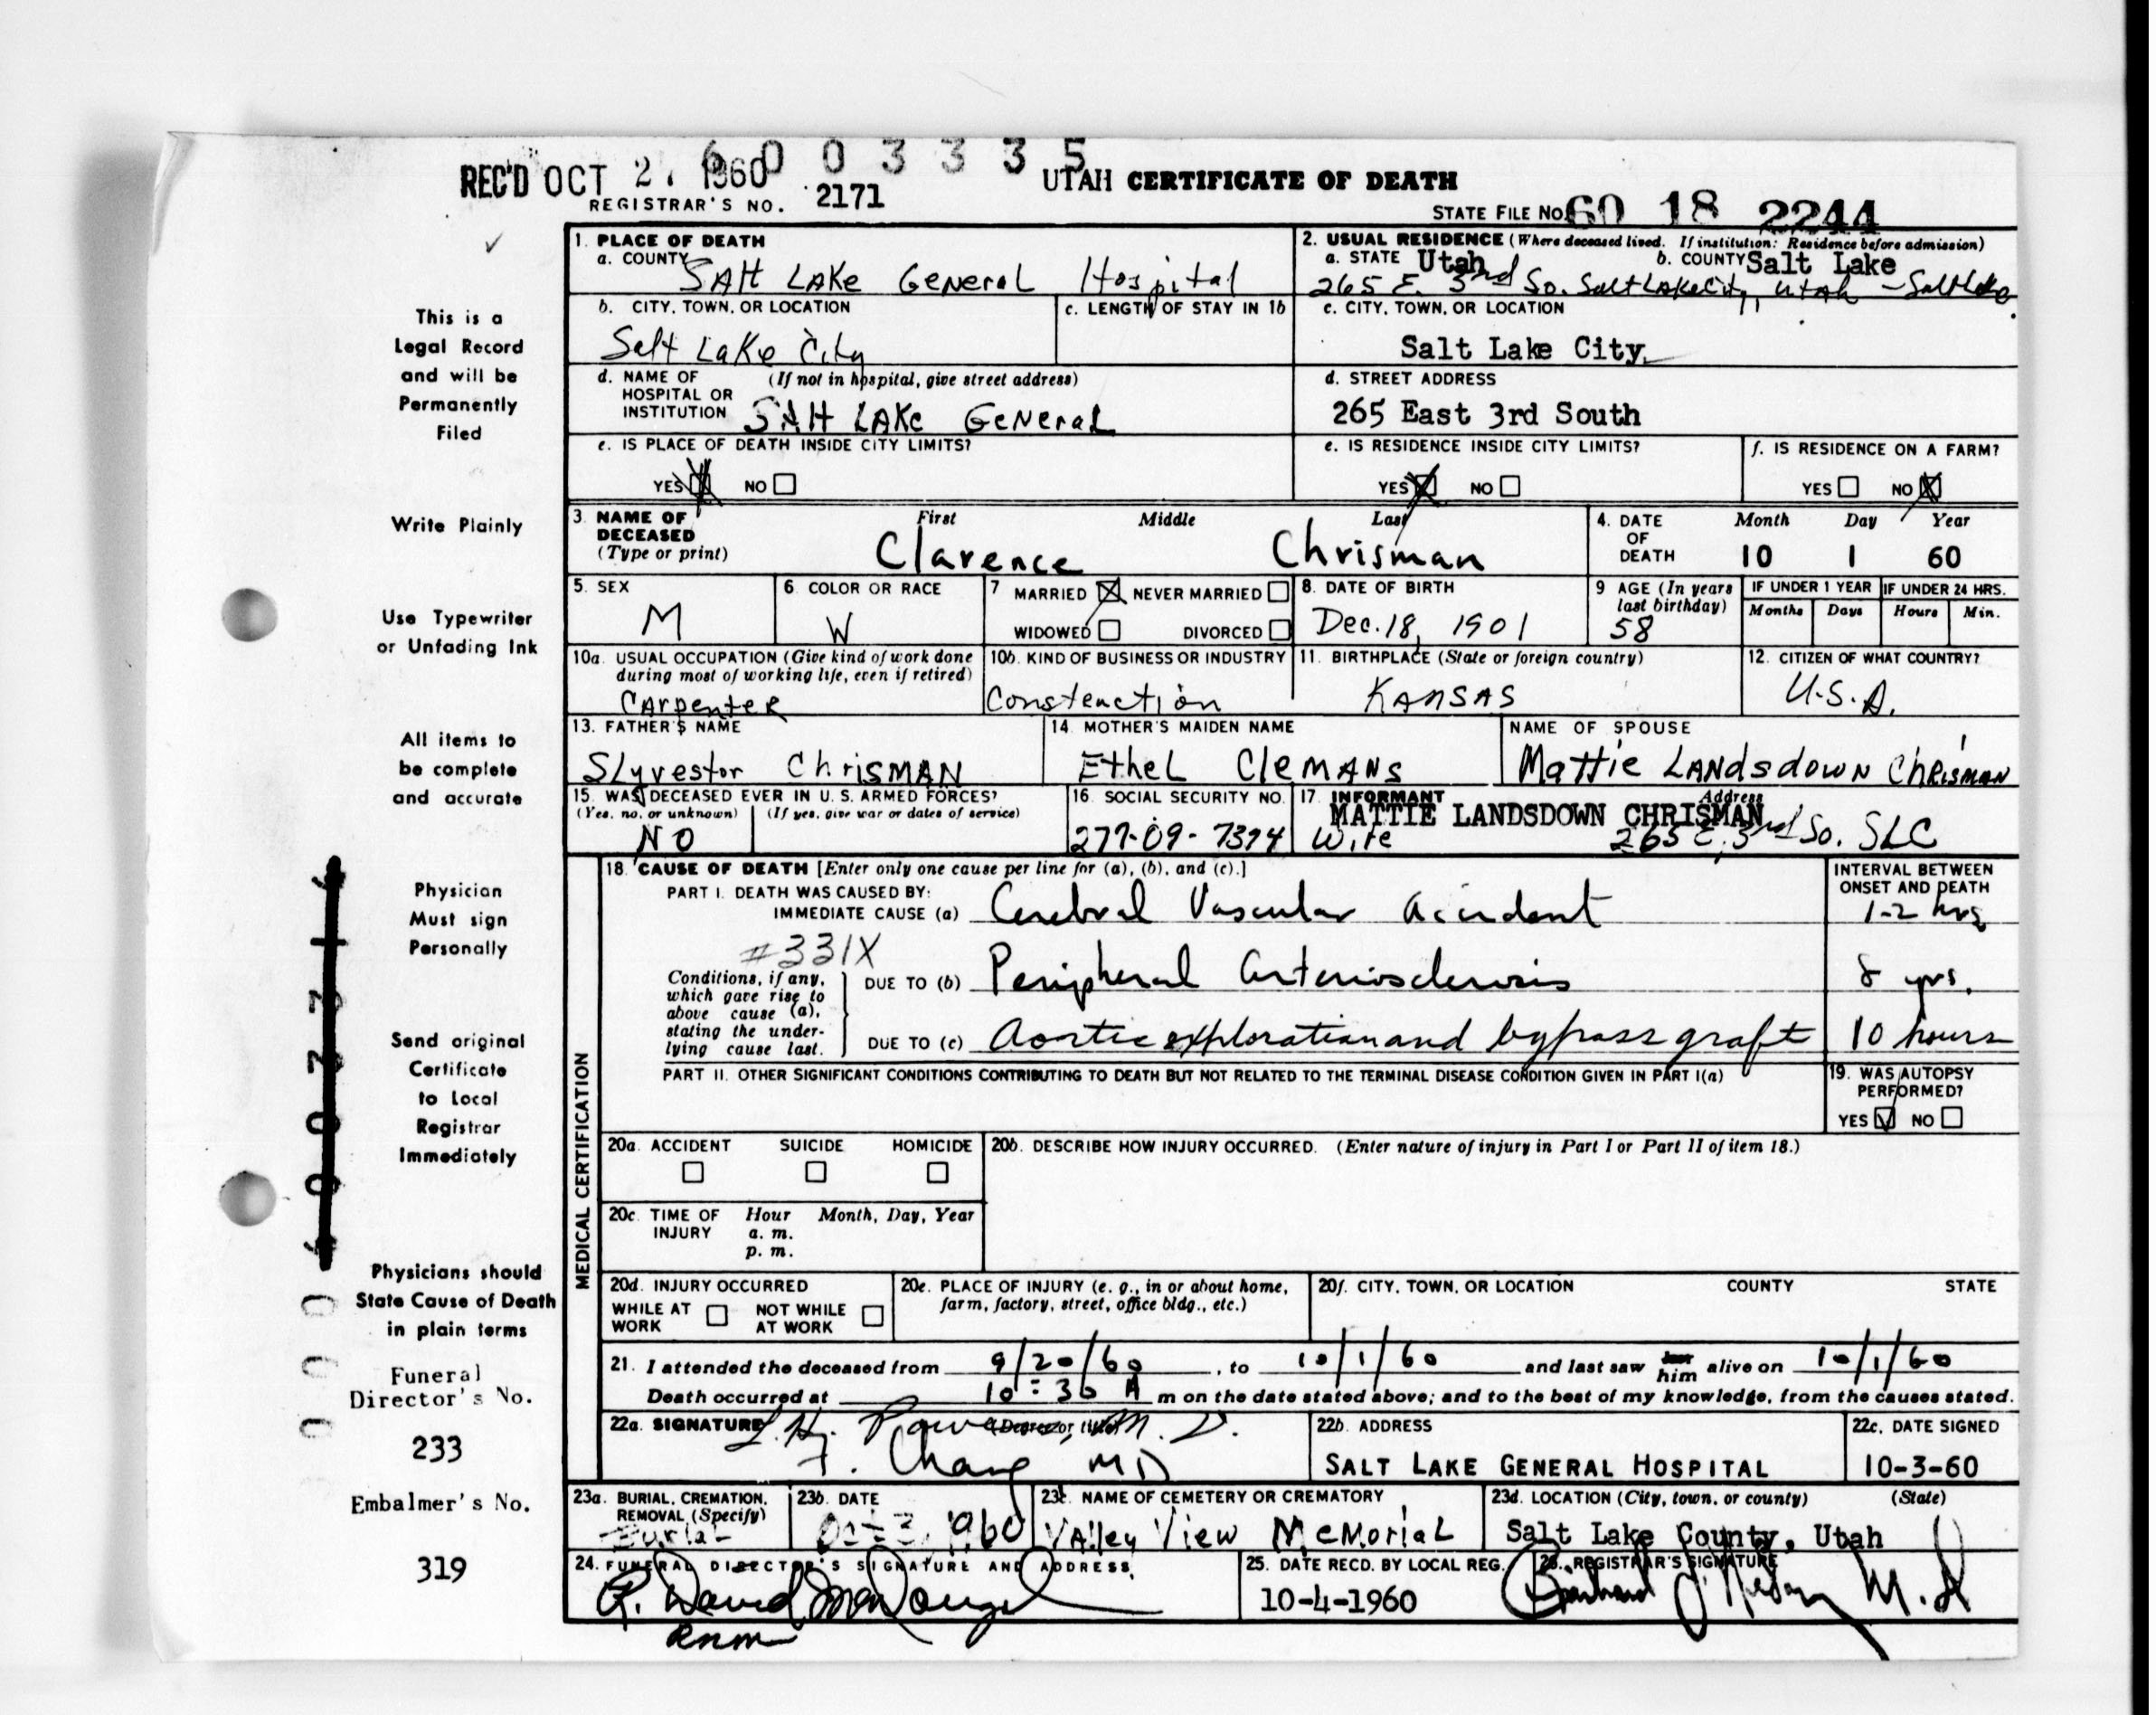 6 0 0 3 3 3 5
REC'D OCT 2 1960
REGISTRAR'S NO. 2171
UTAH CERTIFICATE OF DEATH
STATE FILE NO. 60 18 2244
This is a
Legal Record
and will be
Permanently
Filed
Write Plainly
Use Typewriter
or Unfading Ink
All items to
be complete
and accurate
Physician
Must sign
Personally
Send original
Certificate
to Local
Registrar
Immediately
Physicians should
State Cause of Death
in plain terms
Funeral
Director's No.
233
Embalmer's No.
319
1. PLACE OF DEATH
a. COUNTY
SAlt LAKe GeNeral Hospital
2. USUAL RESIDENCE (Where deceased lived. If institution: Residence before admission)
a. STATE Utah b. COUNTY Salt Lake
265 E. 3rd So. Salt LAKe City, UtAh - Salt Lake
b. CITY, TOWN, OR LOCATION
Salt LaKe City
c. LENGTH OF STAY IN 1b
c. CITY, TOWN, OR LOCATION
Salt Lake City
d. NAME OF (If not in hospital, give street address)
HOSPITAL OR
INSTITUTION SAlt LAKe GeNeral
d. STREET ADDRESS
265 East 3rd South
e. IS PLACE OF DEATH INSIDE CITY LIMITS?
YES NO
e. IS RESIDENCE INSIDE CITY LIMITS?
YES NO
f. IS RESIDENCE ON A FARM?
YES NO
3. NAME OF DECEASED (Type or print)
First Middle Last
Clarence Chrisman
4. DATE OF DEATH
Month Day Year
10 1 60
5. SEX
M
6. COLOR OR RACE
W
7 MARRIED NEVER MARRIED
WIDOWED DIVORCED
8. DATE OF BIRTH
Dec. 18, 1901
9 AGE (In years last birthday)
58
IF UNDER 1 YEAR
Months Days
IF UNDER 24 HRS.
Hours Min.
10a. USUAL OCCUPATION (Give kind of work done
during most of working life, even if retired)
CArpenteR
10b. KIND OF BUSINESS OR INDUSTRY
Constenction
11. BIRTHPLACE (State or foreign country)
KANSAS
12. CITIZEN OF WHAT COUNTRY?
U.S.A.
13. FATHER'S NAME
Slyvestor ChriSMAN
14. MOTHER'S MAIDEN NAME
EtheL CleMANs
NAME OF SPOUSE
Mattie LANdsdowN ChRiSMAN
15. WAS DECEASED EVER IN U. S. ARMED FORCES?
(Yes, no, or unknown) (If yes, give war or dates of service)
NO
16. SOCIAL SECURITY NO.
277-09-7374
17. INFORMANT Address
MATTIE LANDSDOWN CHRISMAN
Wife 265 E. 3rd So. SLC
MEDICAL CERTIFICATION
18. CAUSE OF DEATH [Enter only one cause per line for (a), (b), and (c).]
PART I. DEATH WAS CAUSED BY:
IMMEDIATE CAUSE (a) Cerebral Vascular Accident
INTERVAL BETWEEN
ONSET AND DEATH
1-2 hrs
#331X
Conditions, if any,
which gave rise to
above cause (a),
stating the under-
lying cause last.
DUE TO (b) Peripheral Arteriosclerosis
8 yrs.
DUE TO (c) Aortic exploration and bypass graft
10 hours
PART II. OTHER SIGNIFICANT CONDITIONS CONTRIBUTING TO DEATH BUT NOT RELATED TO THE TERMINAL DISEASE CONDITION GIVEN IN PART I(a)
19. WAS AUTOPSY
PERFORMED?
YES NO
20a. ACCIDENT SUICIDE HOMICIDE
20b. DESCRIBE HOW INJURY OCCURRED. (Enter nature of injury in Part I or Part II of item 18.)
20c. TIME OF INJURY
Hour Month, Day, Year
a. m.
p. m.
20d. INJURY OCCURRED
WHILE AT WORK NOT WHILE AT WORK
20e. PLACE OF INJURY (e. g., in or about home,
farm, factory, street, office bldg., etc.)
20f. CITY, TOWN, OR LOCATION COUNTY STATE
21. I attended the deceased from 9/20/60, to 10/1/60 and last saw him alive on 10/1/60
Death occurred at 10:30 A m on the date stated above; and to the best of my knowledge, from the causes stated.
22a. SIGNATURE (Degree or title) M.D.
F. Chang MD
22b. ADDRESS
SALT LAKE GENERAL HOSPITAL
22c. DATE SIGNED
10-3-60
23a. BURIAL, CREMATION,
REMOVAL (Specify)
Burial
23b. DATE
Oct 3, 1960
23c. NAME OF CEMETERY OR CREMATORY
VAlley View MeMoriaL
23d. LOCATION (City, town, or county) (State)
Salt Lake County, Utah
24. FUNERAL DIRECTOR'S SIGNATURE AND ADDRESS
R. David
25. DATE RECD. BY LOCAL REG.
10-4-1960
26. REGISTRAR'S SIGNATURE
M.D.